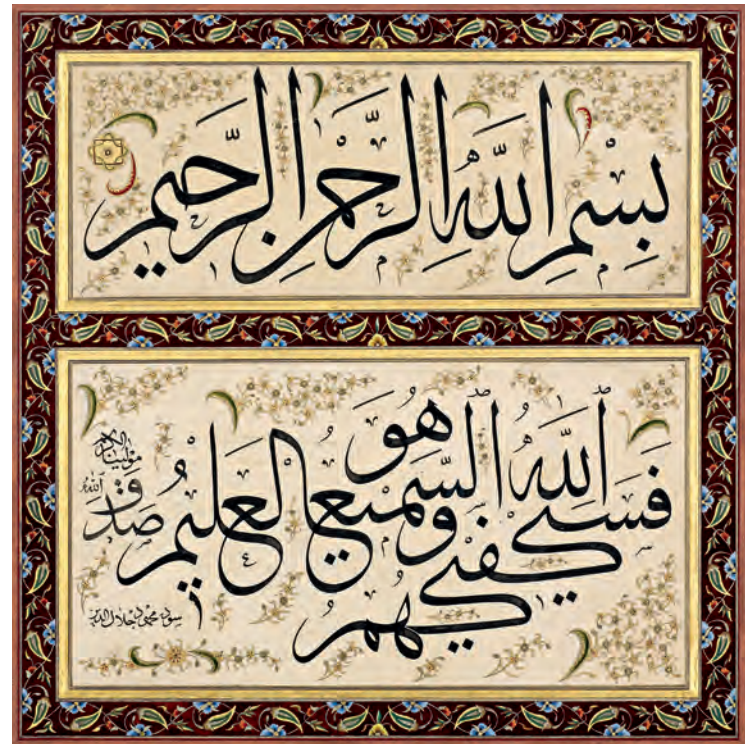 بِسْمِ اللّٰهِ الرَّحْمٰنِ الرَّحيمِ
فَسَيَكْفيكَهُمُ اللّٰهُ وَهُوَ السَّميعُ الْعَليمُ
صدق الله مولينا الكريم
سوده محمود جلال الدين